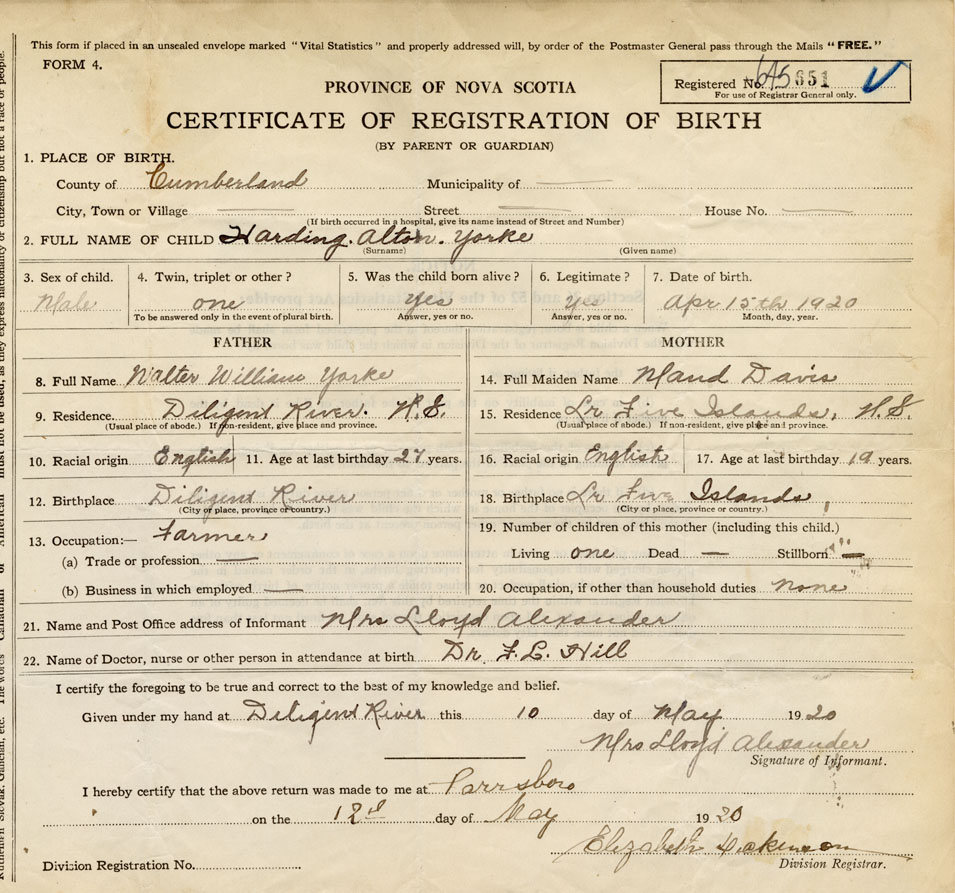 This form if placed in an unsealed envelope marked "Vital Statistics" and properly addressed will, by order of the Postmaster General pass through the Mails "FREE."
FORM 4.
Registered No. 651
For use of Registrar General only.
PROVINCE OF NOVA SCOTIA
CERTIFICATE OF REGISTRATION OF BIRTH
(BY PARENT OR GUARDIAN)
1. PLACE OF BIRTH.
County of Cumberland Municipality of —
City, Town or Village — Street — House No. —
(If birth occurred in a hospital, give its name instead of Street and Number)
2. FULL NAME OF CHILD Harding. Alton. Yorke
(Surname) (Given name)
3. Sex of child. 4. Twin, triplet or other? 5. Was the child born alive? 6. Legitimate? 7. Date of birth.
Male one Yes Yes Apr 15th 1920
To be answered only in the event of plural birth. Answer, yes or no. Answer, yes or no. Month, day, year.
FATHER
8. Full Name Walter William Yorke
9. Residence. Diligent River. N.S.
(Usual place of abode.) If non-resident, give place and province.
10. Racial origin English 11. Age at last birthday 27 years.
12. Birthplace Diligent River
(City or place, province or country.)
13. Occupation:— Farmer
(a) Trade or profession —
(b) Business in which employed —
MOTHER
14. Full Maiden Name Maud Davis
15. Residence Lr Five Islands, N.S.
(Usual place of abode.) If non-resident, give place and province.
16. Racial origin English 17. Age at last birthday 19 years.
18. Birthplace Lr Five Islands
(City or place, province or country.)
19. Number of children of this mother (including this child.)
Living one Dead — Stillborn —
20. Occupation, if other than household duties none
21. Name and Post Office address of Informant Mrs Lloyd Alexander
22. Name of Doctor, nurse or other person in attendance at birth Dr. F. L. Hill
I certify the foregoing to be true and correct to the best of my knowledge and belief.
Given under my hand at Diligent River this 10 day of May 1920
Mrs Lloyd Alexander
Signature of Informant.
I hereby certify that the above return was made to me at Parrsboro
on the 12th day of May 1920
Elizabeth Dickinson
Division Registrar.
Division Registration No.